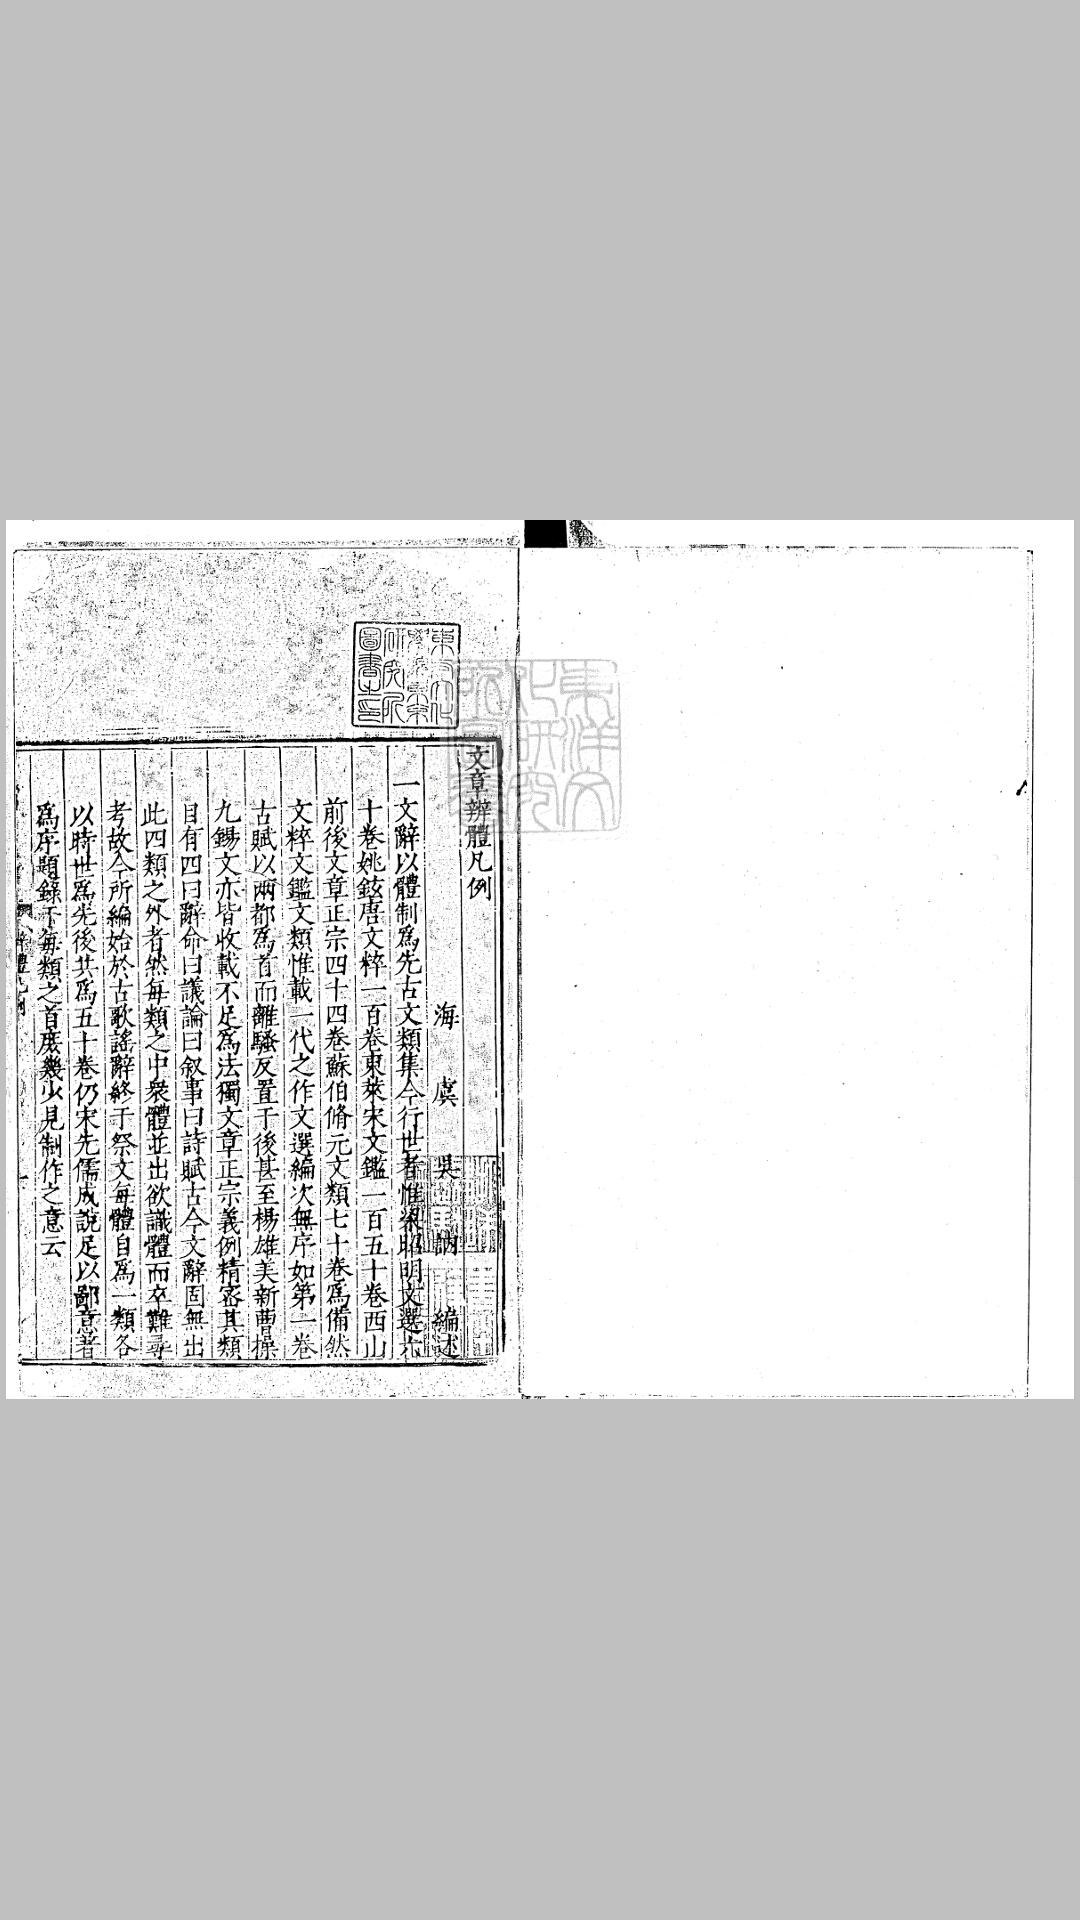 文章辨體凡例
海虞吳訥編述
一文辭以體制爲先古文類集今行世者惟梁昭明文選六
十卷姚鉉唐文粹一百卷東萊宋文鑑一百五十卷西山
前後文章正宗四十四卷蘇伯脩元文類七十卷爲備然
文粹文鑑文類惟載一代之作文選編次無序如第一卷
古賦以兩都爲首而離騷反置于後甚至楊雄美新曹操
九錫文亦皆收載不足爲法獨文章正宗義例精密其類
目有四曰辭命曰議論曰叙事曰詩賦古今文辭固無出
此四類之外者然每類之中衆體並出欲識體而卒難尋
考故今所編始於古歌謠辭終于祭文每體自爲一類各
以時世爲先後共爲五十卷仍宋先儒成說足以鄙意著
爲序題錄于每類之首庶幾少見制作之意云
東洋文化研究所